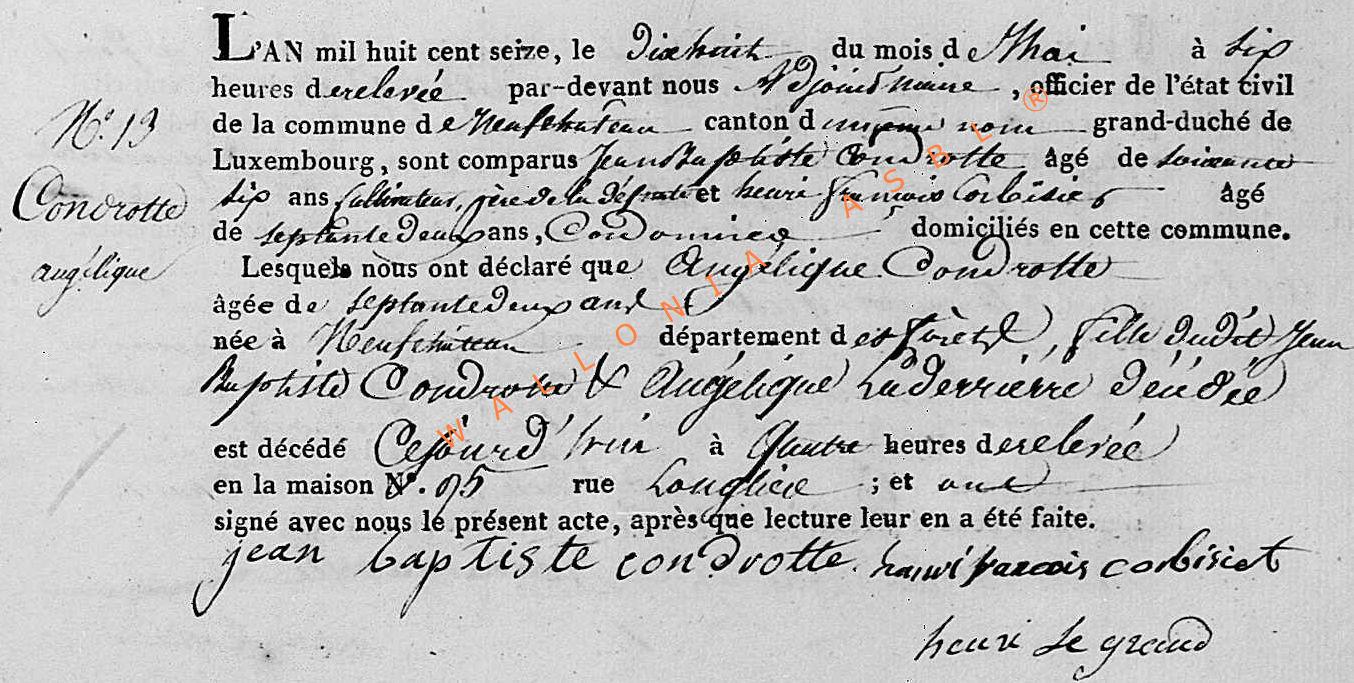 L'AN mil huit cent seize, le dixhuit du mois de Mai à six
heures de relevée par-devant nous Adjoint maire, officier de l'état civil
N.o 13
de la commune de Neufchateau canton du même nom grand-duché de
Luxembourg, sont comparus Jean Baptiste Condrotte âgé de soixante
Condrotte
angélique
six ans cultivateur, père de la défunte et henri françois Corbisier âgé
de septante deux ans, Cordonnier domiciliés en cette commune.
Lesquels nous ont déclaré que Angélique Condrotte
âgée de septante deux ans
née à Neufchateau département des forêts, fille dudit Jean
Baptiste Condrotte & Angélique Laderrierre décédée
est décédé Cejourd'hui à quatre heures de relevée
en la maison N.o 95 rue Longlier ; et ont
signé avec nous le présent acte, après que lecture leur en a été faite.
jean baptiste condrotte henri francois corbisiet
henri Le grand
WALLONIA ASBL ®